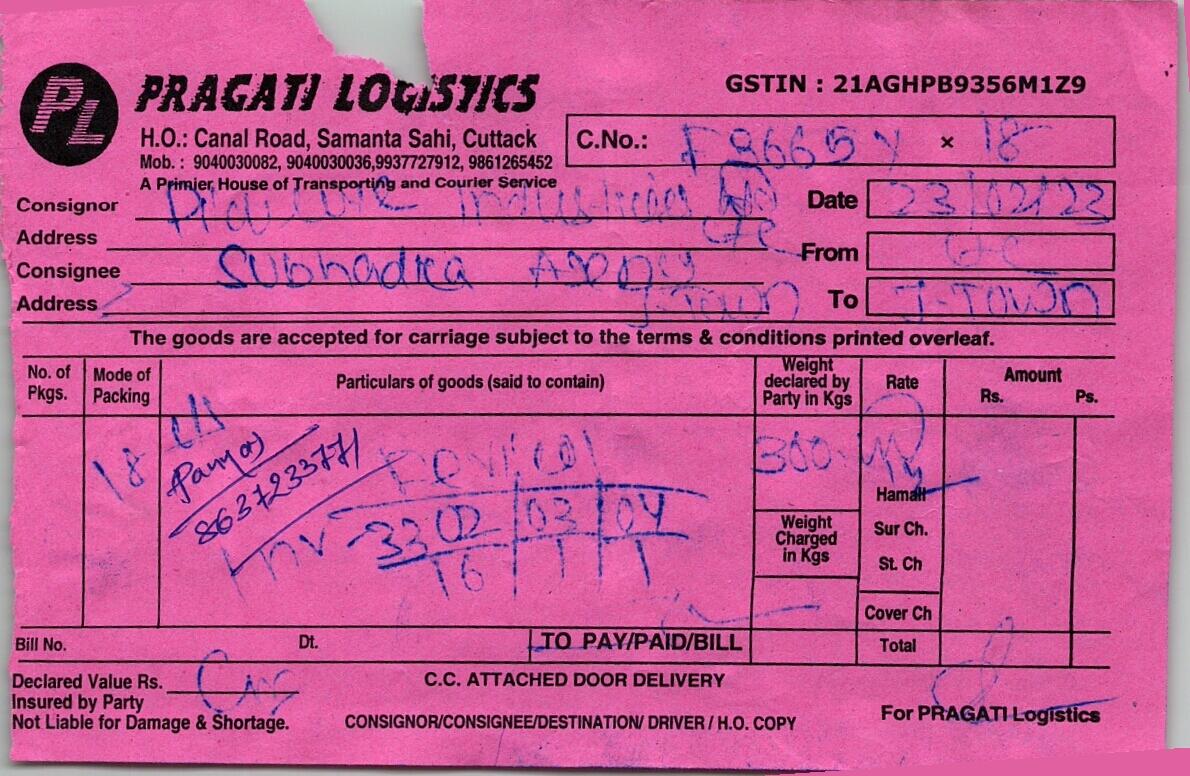 PL PRAGATI LOGISTICS
GSTIN : 21AGHPB9356M1Z9
H.O.: Canal Road, Samanta Sahi, Cuttack
Mob. : 9040030082, 9040030036,9937727912, 9861265452
A Primier House of Transporting and Courier Service
C.No.: × 18
Consignor
Date 23/02/23
Address
From
Consignee Subhadra
Address J-Town
To J-TOWN
The goods are accepted for carriage subject to the terms & conditions printed overleaf.
No. of Pkgs.
Mode of Packing
Particulars of goods (said to contain)
Weight declared by Party in Kgs
Rate
Amount
Rs. Ps.
18
8637233771
300
3302 | 03 | 04
16 | 1 | 1
Hamali
Weight Charged in Kgs
Sur Ch.
St. Ch
Cover Ch
Bill No. Dt. TO PAY/PAID/BILL
Total
Declared Value Rs.
C.C. ATTACHED DOOR DELIVERY
Insured by Party
Not Liable for Damage & Shortage.
CONSIGNOR/CONSIGNEE/DESTINATION/ DRIVER / H.O. COPY
For PRAGATI Logistics